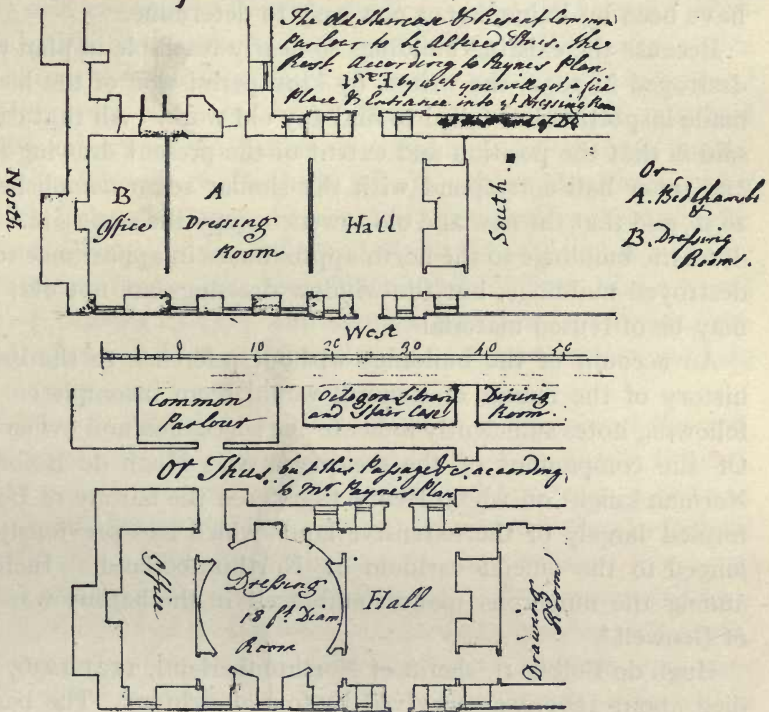 The old Staircase & Present Common
Parlour to be Altered Thus, the
Rest. According to Paynes Plan
East
by wch. you will get a fire
Place & Entrance into ye. Dressing Room
North
B
Office
A
Dressing
Room
Hall
South
Or
A. Bedchamber
&
B. Dressing
Rooms.
West
0 10 20 30 40 50
Common
Parlour
Octogon Library
and Stair Case
Dining
Room.
Or Thus, but this Passage is according
to Mr. Payne's Plan
Office
Dressing
18 ft. Diam
Room
Hall
Drawing
Room